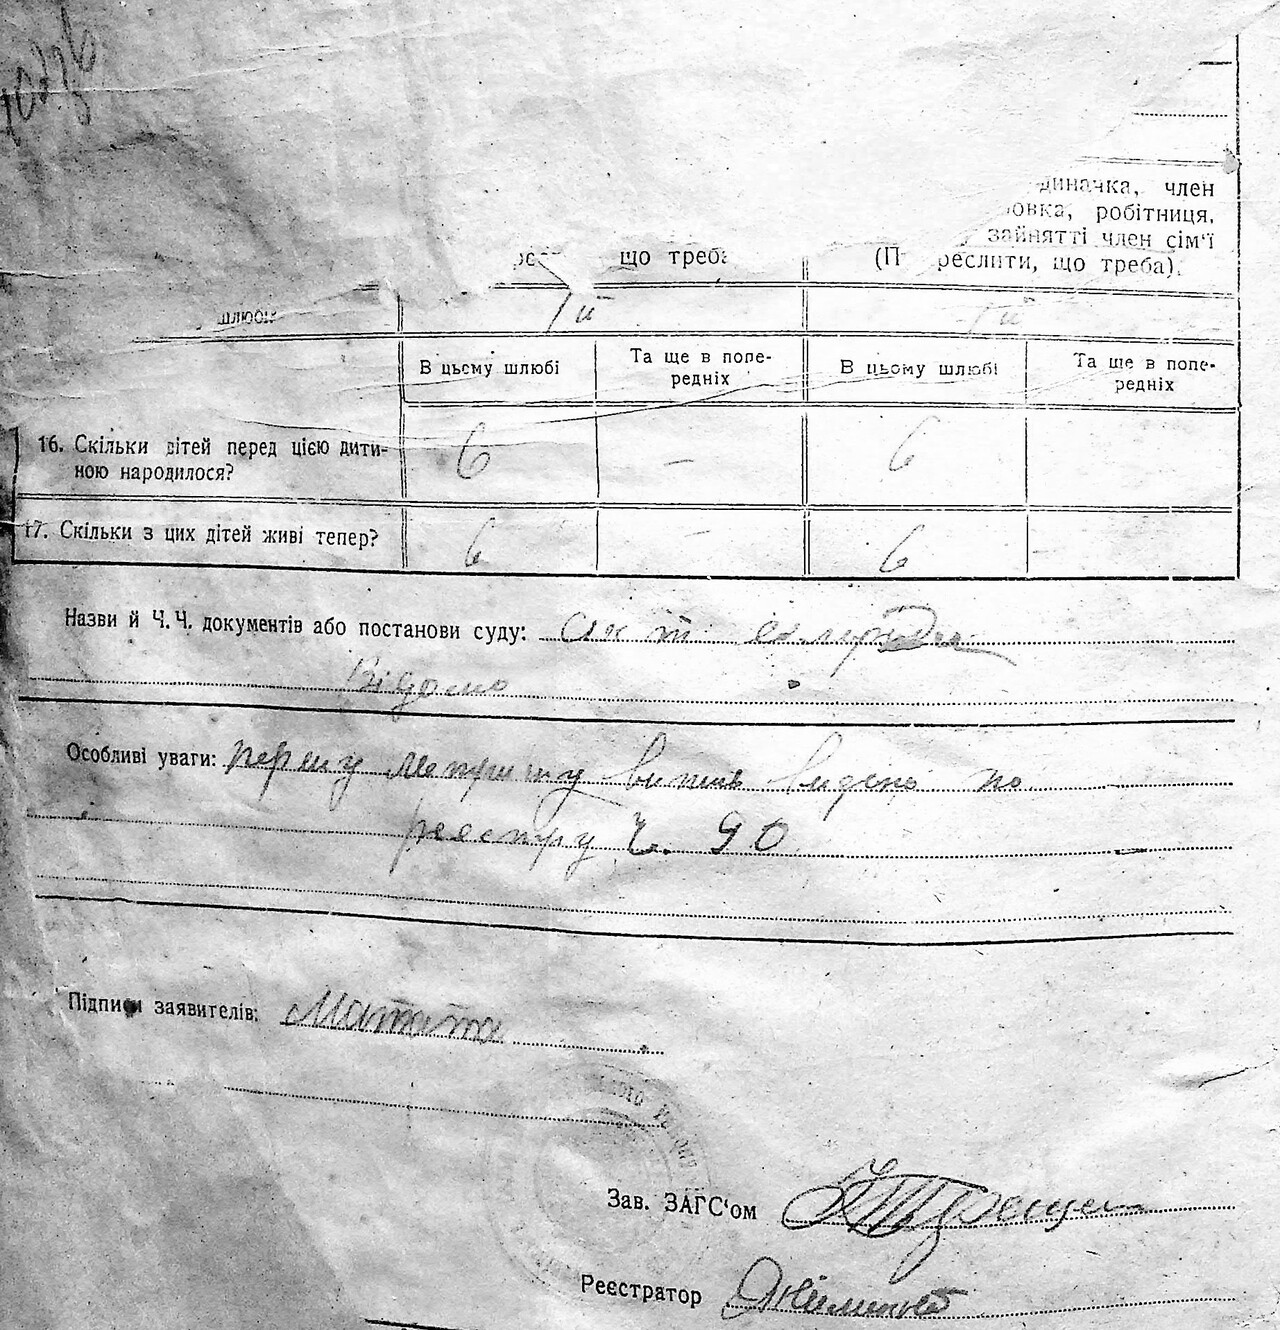 диначка, член
овка, робітниця,
зайнятті член сім'ї
що треба
реслити, що треба).
шлюбі
1й
1й
В цьому шлюбі
Та ще в попе-
редніх
В цьому шлюбі
Та ще в попе-
редніх
16. Скільки дітей перед цією дити-
ною народилося?
6
–
6
17. Скільки з цих дітей живі тепер?
6
–
6
–
Назви й Ч.Ч. документів або постанови суду: Акт
Відомо
Особливі уваги: першу метричну випись видано по
реєстру Ч. 90
Підписи заявителів:
Зав. ЗАГС'ом
Реєстратор